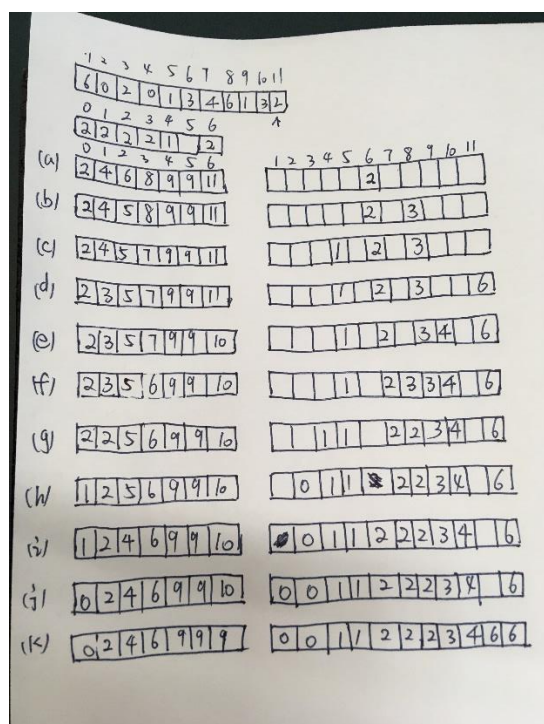 1 2 3 4 5 6 7 8 9 10 11
6 0 2 0 1 3 4 6 1 3 2
A
0 1 2 3 4 5 6
2 2 2 2 1 2
0 1 2 3 4 5 6 1 2 3 4 5 6 7 8 9 10 11
(a) 2 4 6 8 9 9 11 2
(b) 2 4 5 8 9 9 11 2 3
(c) 2 4 5 7 9 9 11 1 2 3
(d) 2 3 5 7 9 9 11 1 2 3 6
(e) 2 3 5 7 9 9 10 1 2 3 4 6
(f) 2 3 5 6 9 9 10 1 2 3 3 4 6
(g) 2 2 5 6 9 9 10 1 1 2 2 3 4 6
(h) 1 2 5 6 9 9 10 0 1 1 2 2 3 4 6
(i) 1 2 4 6 9 9 10 0 1 1 2 2 2 3 4 6
(j) 0 2 4 6 9 9 10 0 0 1 1 2 2 2 3 4 6
(k) 0 2 4 6 9 9 9 0 0 1 1 2 2 2 3 4 6 6